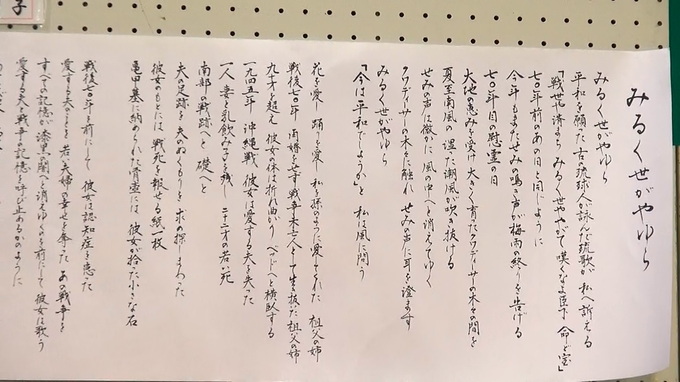 みるく世がやゆら
みるく世がやゆら
平和を願った 古の琉球人が詠んだ琉歌が 私へ訴える
「戦世や済まち みるく世ややがて 嘆くなよ臣下 命ど宝」
七〇年前のあの日と同じように
今年もまたせみの鳴き声が梅雨の終りを告げる
七〇年目の慰霊の日
大地の恵みを受け 大きく育ったクワディーサーの木々の間を
夏至南風の 湿った潮風が吹き抜ける
せみの声は微かに 風の中へと消えてゆく
クワディーサーの木に触れ せみの声に耳を澄ます
みるく世がやゆら
「今は平和でしょうか」と 私は風に問う
花を愛し 踊りを愛し 私を孫のように愛してくれた 祖父の姉
戦後七〇年 再婚をせず 戦争未亡人として生き抜いた 祖父の姉
九才を超え 彼女の体は折れ曲がり ベッドへと横臥する
一九四五年 沖縄戦 彼女は愛する夫を失った
一人 妻と乳飲み子を残し 二十二才の若い死
南部の戦跡へと 礎へと
夫の足跡を 夫のぬくもりを 求め探しまわった
彼女のもとには 戦死を報せる紙一枚
亀甲墓に納められた骨壺には 彼女が拾った小さな石
戦後七〇年を前にして 彼女は認知症を患った
愛する夫のことを 若い夫婦の幸せを奪った あの戦争を
すべての記憶が 漆黒の闇へと消えゆくのを前にして 彼女は歌う
愛する夫と戦争の記憶を呼び止めるかのように